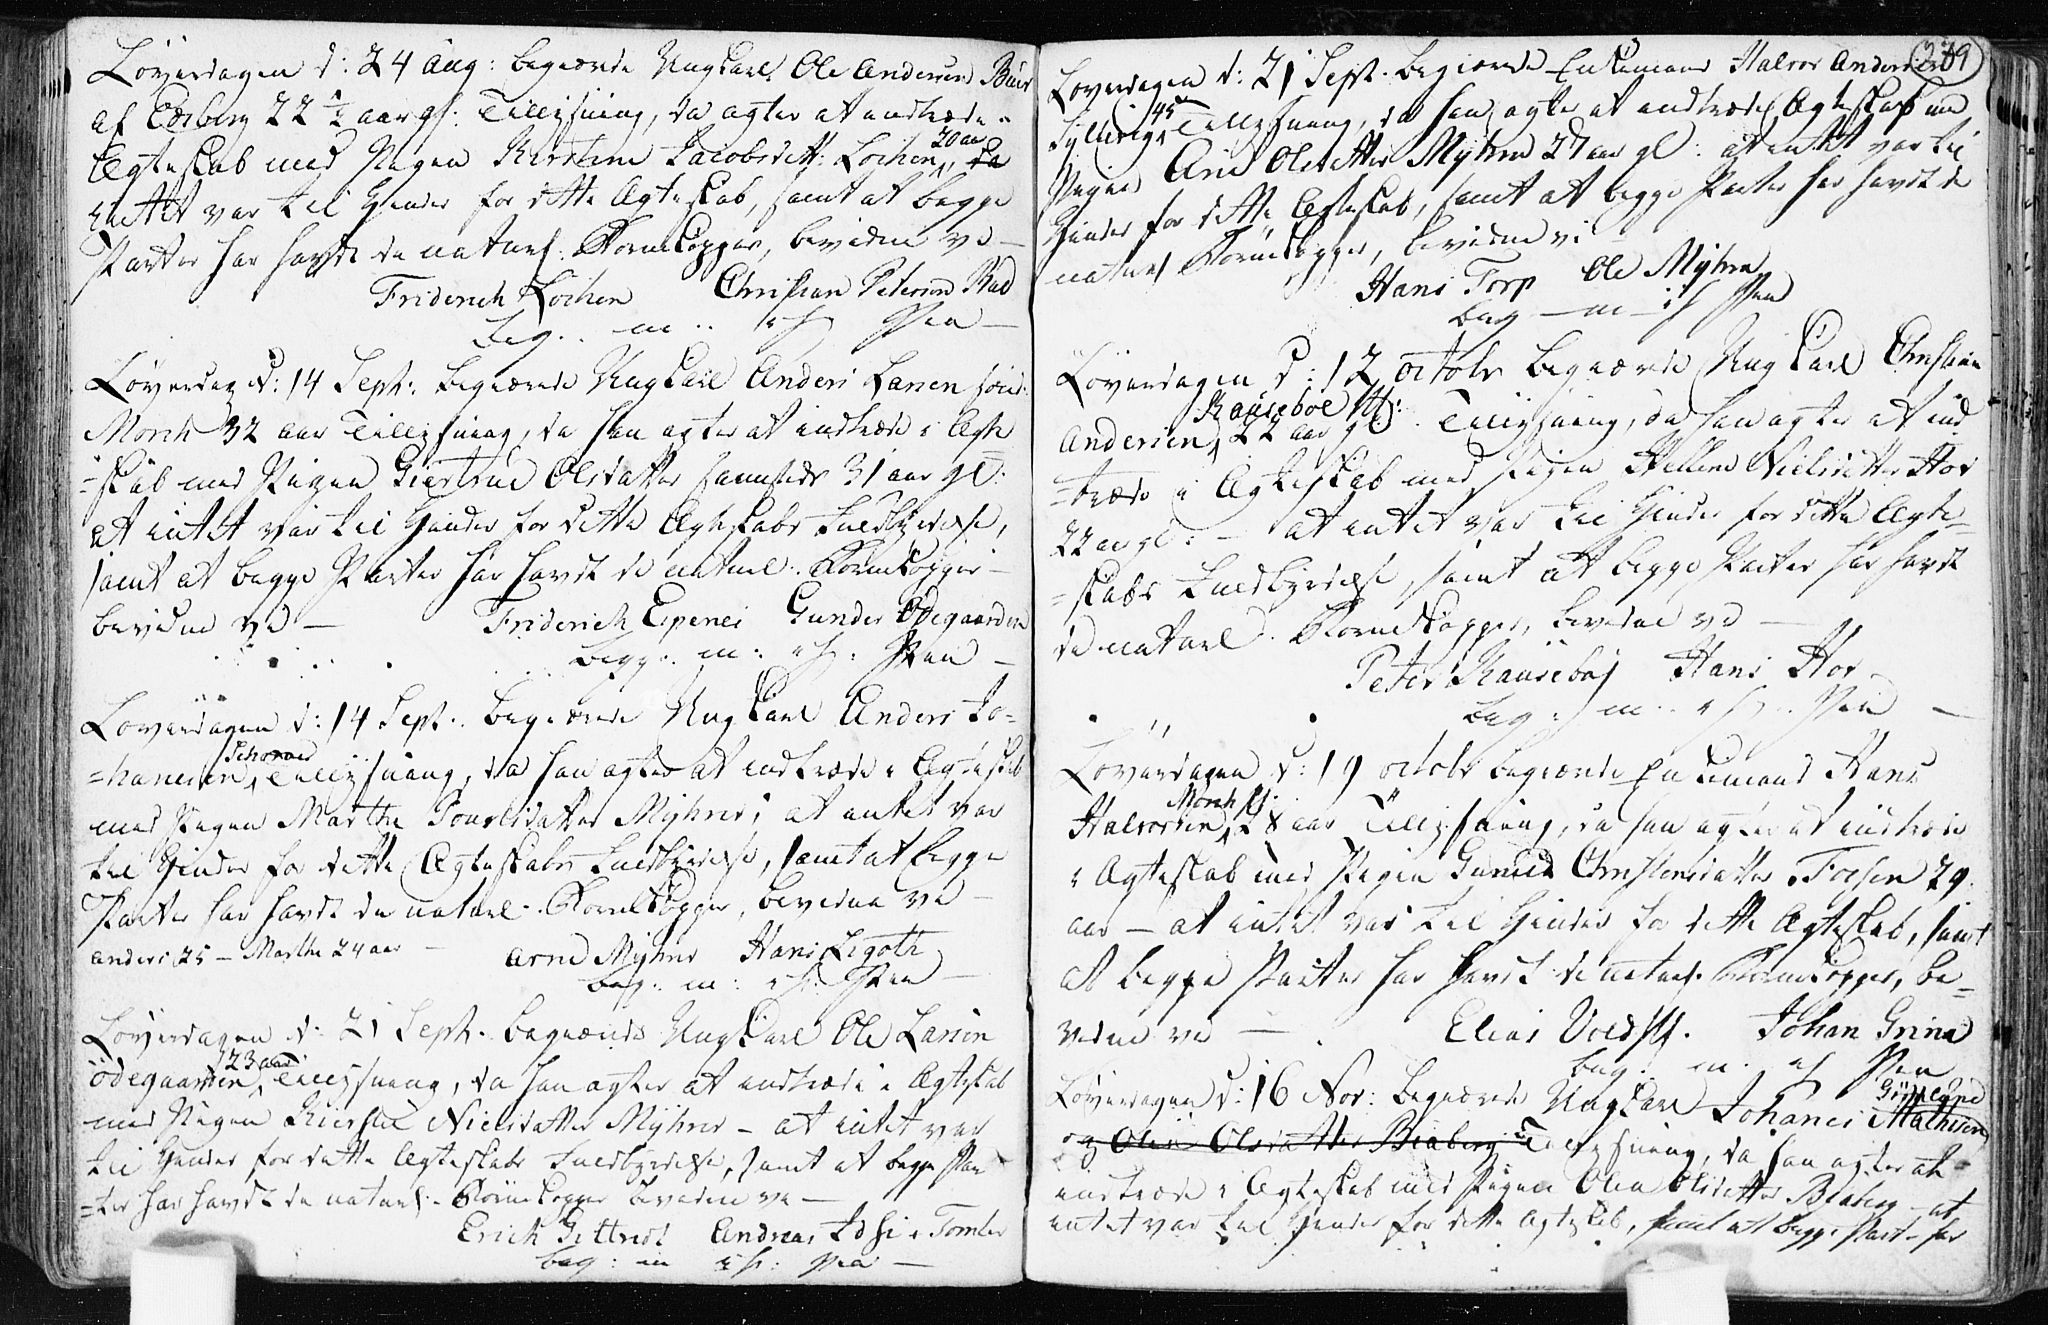 Løverdagen d: 24 Aug: begiærede Ungkarl Ole Andersen
af 22 ½ aar gl: Tillysning, da agter at indtræde i
Ægteskab med Pigen Kirstine Jacobsdatt: Lochen, 20 aar
intet var til Hinder for dette Ægteskab, samt at begge
Parter har havdt de naturl: Børnekopper, bevidne vi –
Friderich Lochen Christian Petersen Rud
beg: m: i h: Pen –
Løverdag d: 14 Sept: begiærede Ungkarl Anders Larsen
Mørch 32 aar Tillysning, da han agter at indtræde i Ægte
=skab med Pigen Giertrue Olsdatter sammesteds 31 aar gl:
at intet var til Hinder for dette Ægteskabs Fuldbyrdelse,
samt at begge Parter har havdt de naturl: Børnekopper –
bevidne vi – Friderich Espenes Gunder Ødegaarden
begg: m: i h: Pen –
Løverdagen d: 14 Sept. begiærede Ungkarl Anders Jo=
=hanesen, Tillysning, da han agter at indtræde i Ægteskab
med Pigen Marthe Poulsdatter Myhrer; at intet var
til Hinder for dette Ægteskabs Fuldbyrdelse, samt at begge
Parter har havdt de naturl: Børnekopper, bevidne vi –
Anders 25 – Marthe 24 aar – Arne Myhrer Hans Ligoth
beg: m: i h: Pen –
Løverdagen d: 21 Sept. begiærede Ungkarl Ole Larsen
Ødegaarden, 23 aar Tillysning, da han agter at indtræde i Ægteskab
med Pigen Kierstie Nielsdatter Myhrer – at intet var
til Hinder for dette Ægteskabs Fuldbyrdelse, samt at begge Par
=ter har havdt de naturl: Børnekopper bevidne vi –
Erich Gittrest Andreas Tomler
beg: m i h: Pen –
Løverdagen d: 21 Sept. begiærede Enkemand Halvor Andersen
Sylling 45 Tillysning, da han agter at indtræde Ægteskab med
Pigen Ane Olsdatter Myhren 27 aar gl: at intet var til
Hinder for dette Ægteskab, samt at begge Parter har havdt de
naturl Børnekopper, bevidne vi
Hans Torp Ole Myhren
beg – m – i h Pen
Løverdagen d: 12 octobr begiærede Ungkarl Christian
Andersen, 22 aar gl: Tillysning, da han agter at ind
=træde i Ægteskab med Pigen Hellene Nielsdatter Hov
22 aar gl: – at intet var til Hinder for dette Ægte=
=skabs Fuldbyrdelse, samt at begge Parter har havdt
de naturl. Børnekopper, bevidne vi –
Peter Hans Hov
beg: m: i h: Pen –
Løverdagen d: 19 octobr begiærede Enkemand Hans
Halvorsen, Mørch 28 aar Tillysning, da han agter at indtræde
i Ægteskab med Pigen Christensdatter 29
aar – at intet var til Hinder for dette Ægteskab, samt
at begge Parter har havdt de naturl. Børnekopper, be=
vidne vi – Elias Johan Grina
beg: m: i h Pen
Løverdagen d: 16 Nov: begiærede Ungkarl Johanes Mathisen
og Olia Olsdatter Tillysning, da han agter at
indtræde i Ægteskab med Pigen Olia Olsdatter – at
intet var til Hinder for dette Ægteskab, samt at begge Part- har